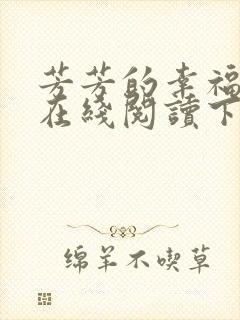 芳芳的幸福
在綫閱讀下
绵羊不喫草